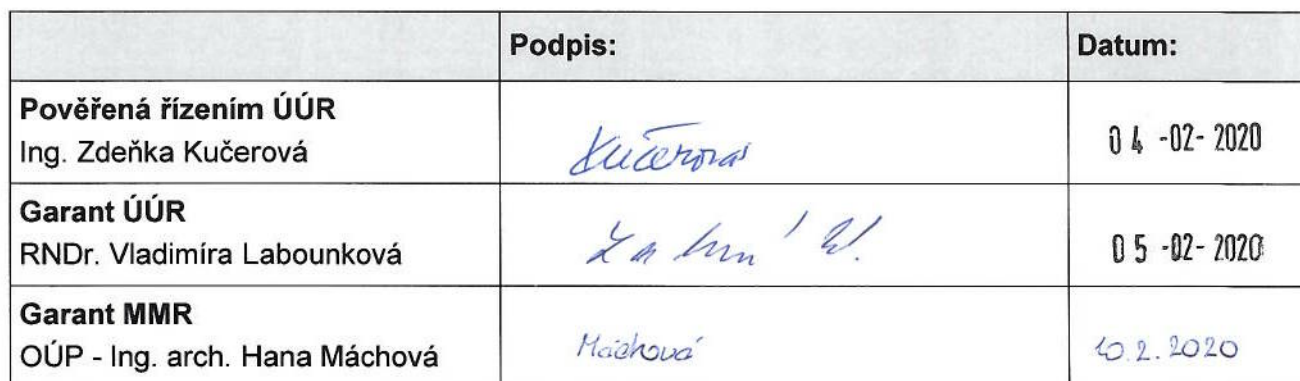 Podpis: Datum:
Pověřená řízením ÚÚR
Ing. Zdeňka Kučerová Kučerová 04 -02- 2020
Garant ÚÚR
RNDr. Vladimíra Labounková 05 -02- 2020
Garant MMR
OÚP - Ing. arch. Hana Máchová Máchová 10.2.2020